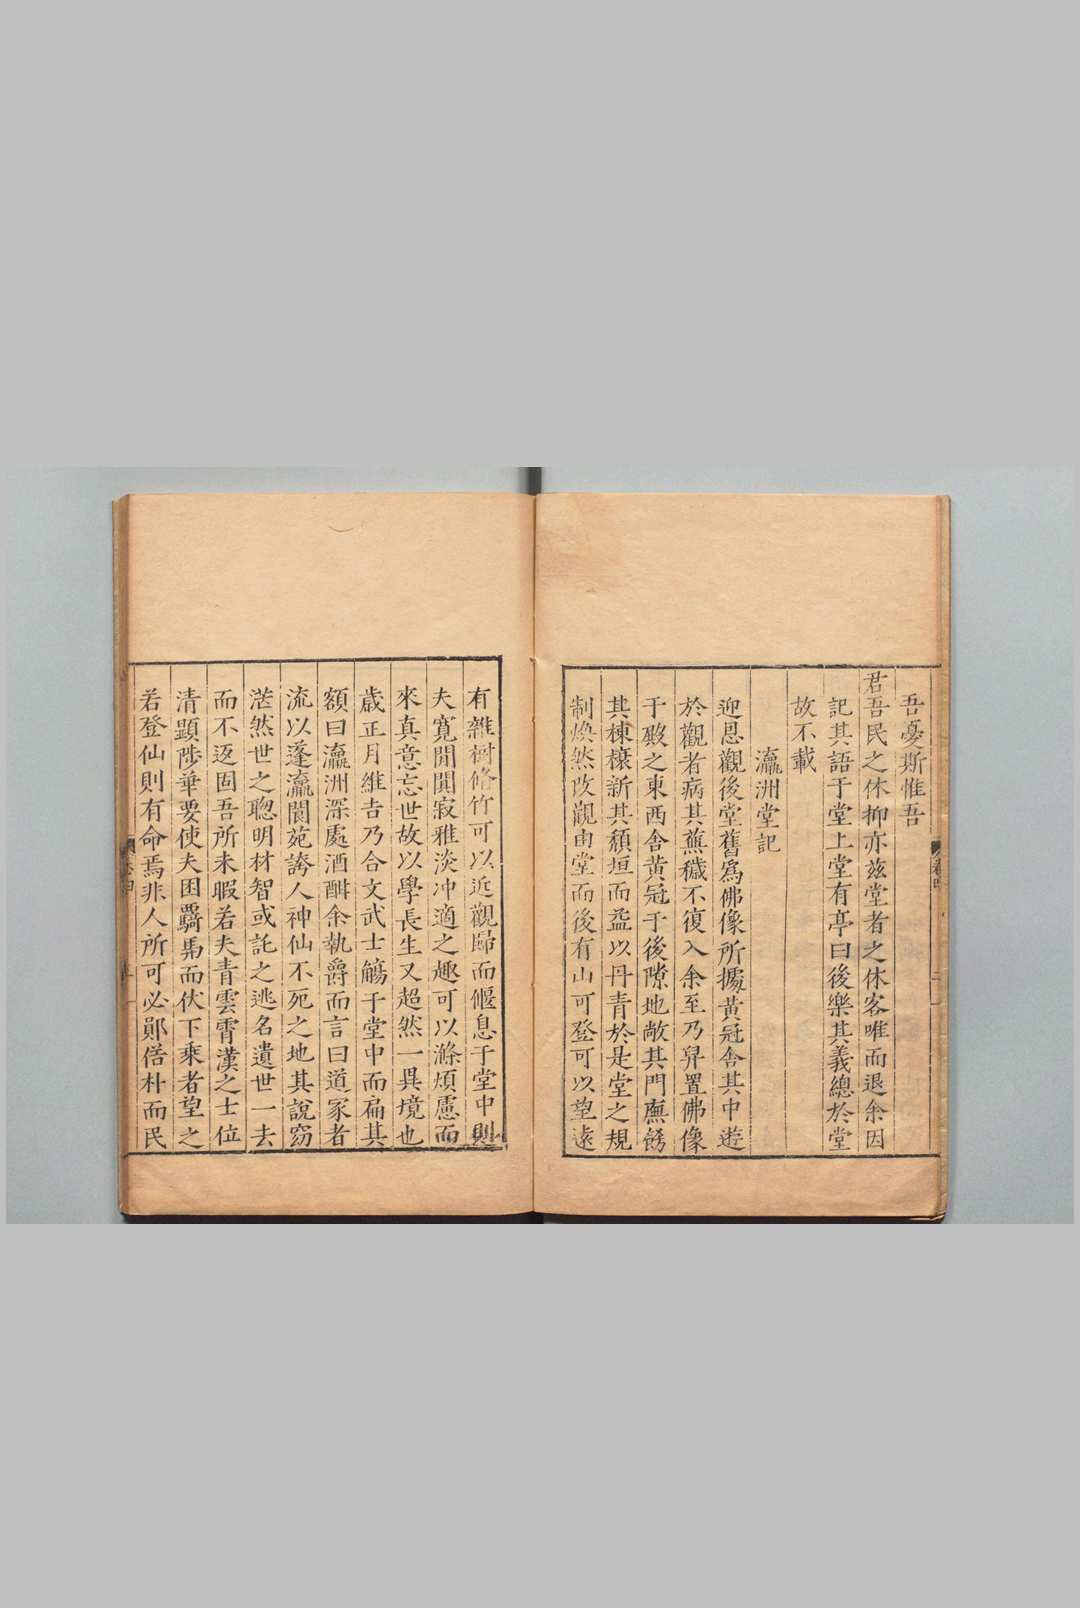 吾憂斯惟吾
君吾民之休抑亦茲堂者之休客唯而退余因
記其語于堂上堂有亭曰後樂其義總於堂
故不載
瀛洲堂記
迎恩觀後堂舊爲佛像所據黃冠舍其中遊
於觀者病其蕪穢不復入余至乃舁置佛像
于殿之東西舍黃冠于後隙地敞其門廡餙
其棟榱新其頹垣而盃以丹青於是堂之規
制煥然改觀由堂而後有山可登可以望遠
有雜樹脩竹可以近觀歸而偃息于堂中則
夫寬閒闃寂雅淡冲適之趣可以滌煩慮而
來真意忘世故以學長生又超然一異境也
歲正月維吉乃合文武士觴于堂中而扁其
額曰瀛洲深處酒酣余執爵而言曰道家者
流以蓬瀛閬苑誇人神仙不死之地其說窈
茫然世之聰明材智或託之逃名遺世一去
而不返固吾所未暇若夫青雲霄漢之士位
清顯陟華要使夫困驕馬而伏下乘者望之
若登仙則有命焉非人所可必鄖僐朴而民
卷四
卷四